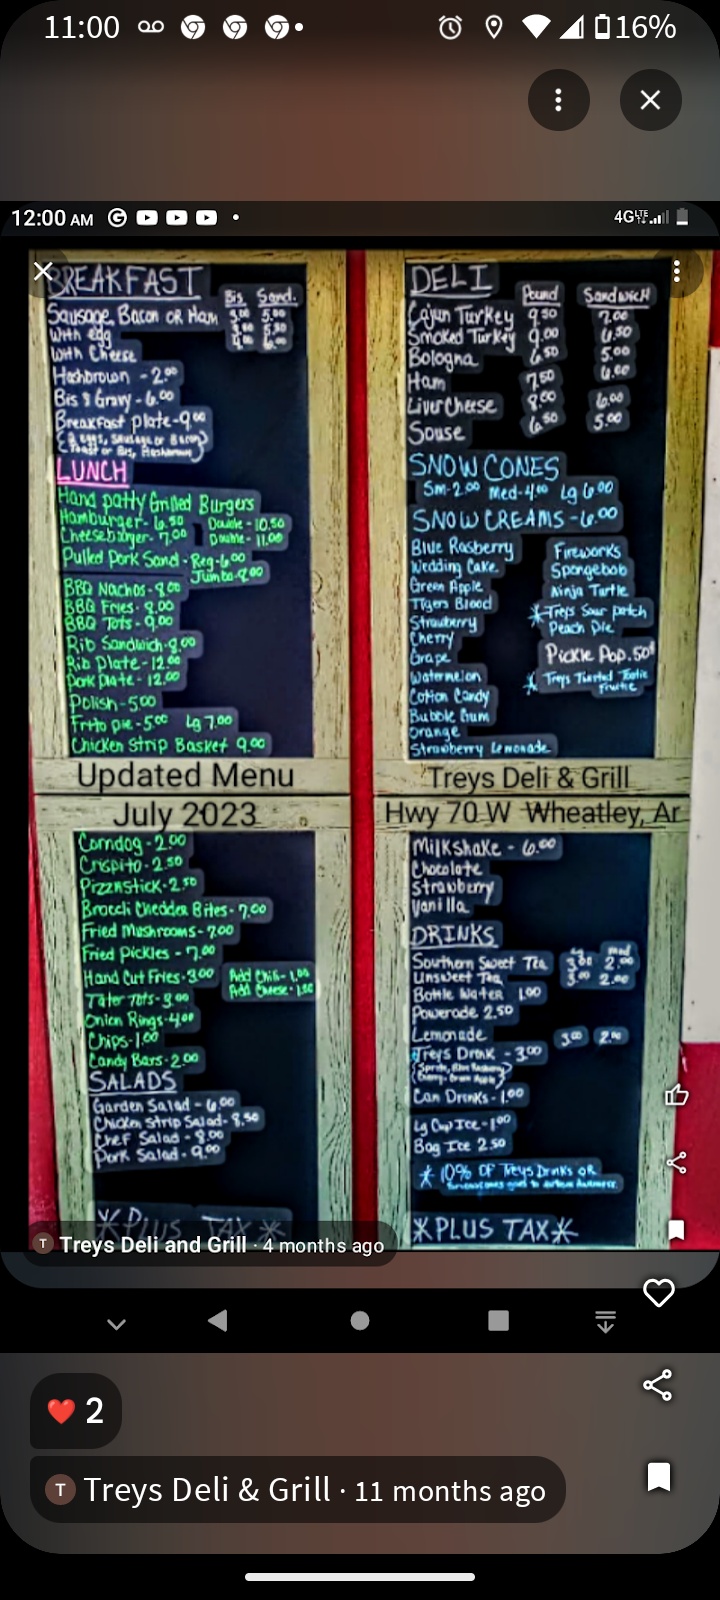 11:00
16%
12:00 AM
4G LTE
BREAKFAST
Bis. Sand.
Sausage, Bacon or Ham 3.00 5.00
with egg
with Cheese
Hashbrown - 2.00
Bis & Gravy - 6.00
Breakfast plate - 9.00
LUNCH
Hand patty Grilled Burgers
Hamburger - 6.50 Double - 10.50
Cheeseburger - 7.00 Double - 11.00
Pulled Pork Sand - Reg - 6.00
Jumbo - 8.00
BBQ Nachos - 8.00
BBQ Fries - 9.00
BBQ Tots - 9.00
Rib Sandwich - 8.00
Rib Plate - 12.00
Pork plate - 12.00
Polish - 5.00
Frito pie - 5.00 Lg 7.00
Chicken Strip Basket 9.00
Updated Menu
July 2023
Corndog - 2.00
Crispito - 2.50
Pizzastick - 2.50
Brocli Chedder Bites - 7.00
Fried Mushrooms - 7.00
Fried Pickles - 7.00
Hand Cut Fries - 3.00 Add Chili - 1.00
Add Cheese - 1.00
Tater Tots - 3.00
Onion Rings - 4.00
Chips - 1.00
Candy Bars - 2.00
SALADS
Garden Salad - 6.00
Chicken Strip Salad - 8.50
Chef Salad - 8.00
Pork Salad - 9.00
*PLUS TAX*
DELI
Pound Sandwich
Cajun Turkey 9.50 7.00
Smoked Turkey 9.00 6.50
Bologna 6.50 5.00
Ham 7.50 6.00
Liver Cheese 8.00 6.00
Souse 6.50 5.00
SNOW CONES
Sm - 2.00 Med - 4.00 Lg 6.00
SNOW CREAMS - 6.00
Blue Rasberry
Wedding Cake
Green Apple
Tigers Blood
Strawberry
Cherry
Grape
Watermelon
Cotton Candy
Bubble Gum
Orange
Strawberry Lemonade
Fireworks
Spongebob
Ninja Turtle
*Treys Sour patch
Peach Pie
Pickle Pop .50¢
*Treys Twisted Tootie
Fruitie
Treys Deli & Grill
Hwy 70 W Wheatley, Ar
Milkshake - 6.00
Chocolate
Strawberry
Vanilla
DRINKS
Lg med
Southern Sweet Tea 3.00 2.00
Unsweet Tea 3.00 2.00
Bottle Water 1.00
Powerade 2.50
Lemonade 3.00 2.00
Treys Drink - 3.00
Can Drinks - 1.00
Lg Cup Ice - 1.00
Bag Ice 2.50
* 10% OF Treys Drinks or
*PLUS TAX*
T Treys Deli and Grill · 4 months ago
2
T Treys Deli & Grill · 11 months ago